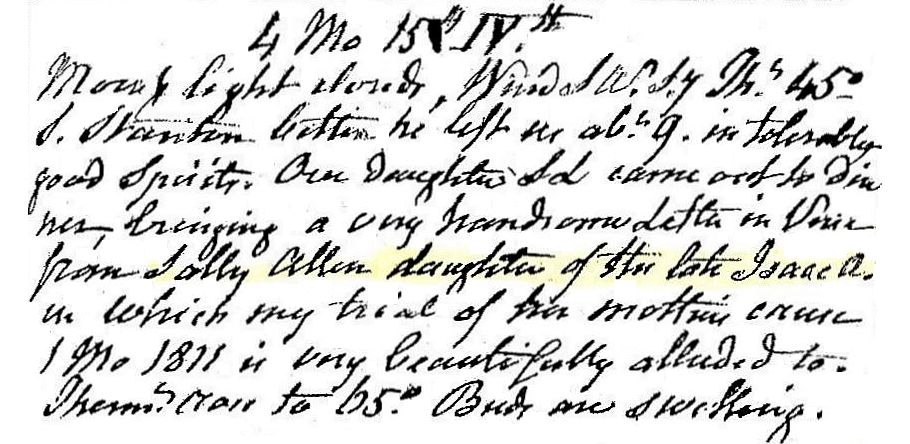 4 Mo 15th IV.th
Morng light clouds, Wind S W. Thr 45°
S. Stanton better he left us abt 9. in tolerably
good Spirits. Our daughter S L came out to din
ner, bringing a very handsome Letter in Verse
from Sally Allen daughter of the late Isaac A.
in which my trial of her mothers cause
1 Mo 1811 is very beautifully alluded to.
Thermr rose to 65° Buds are swelling.